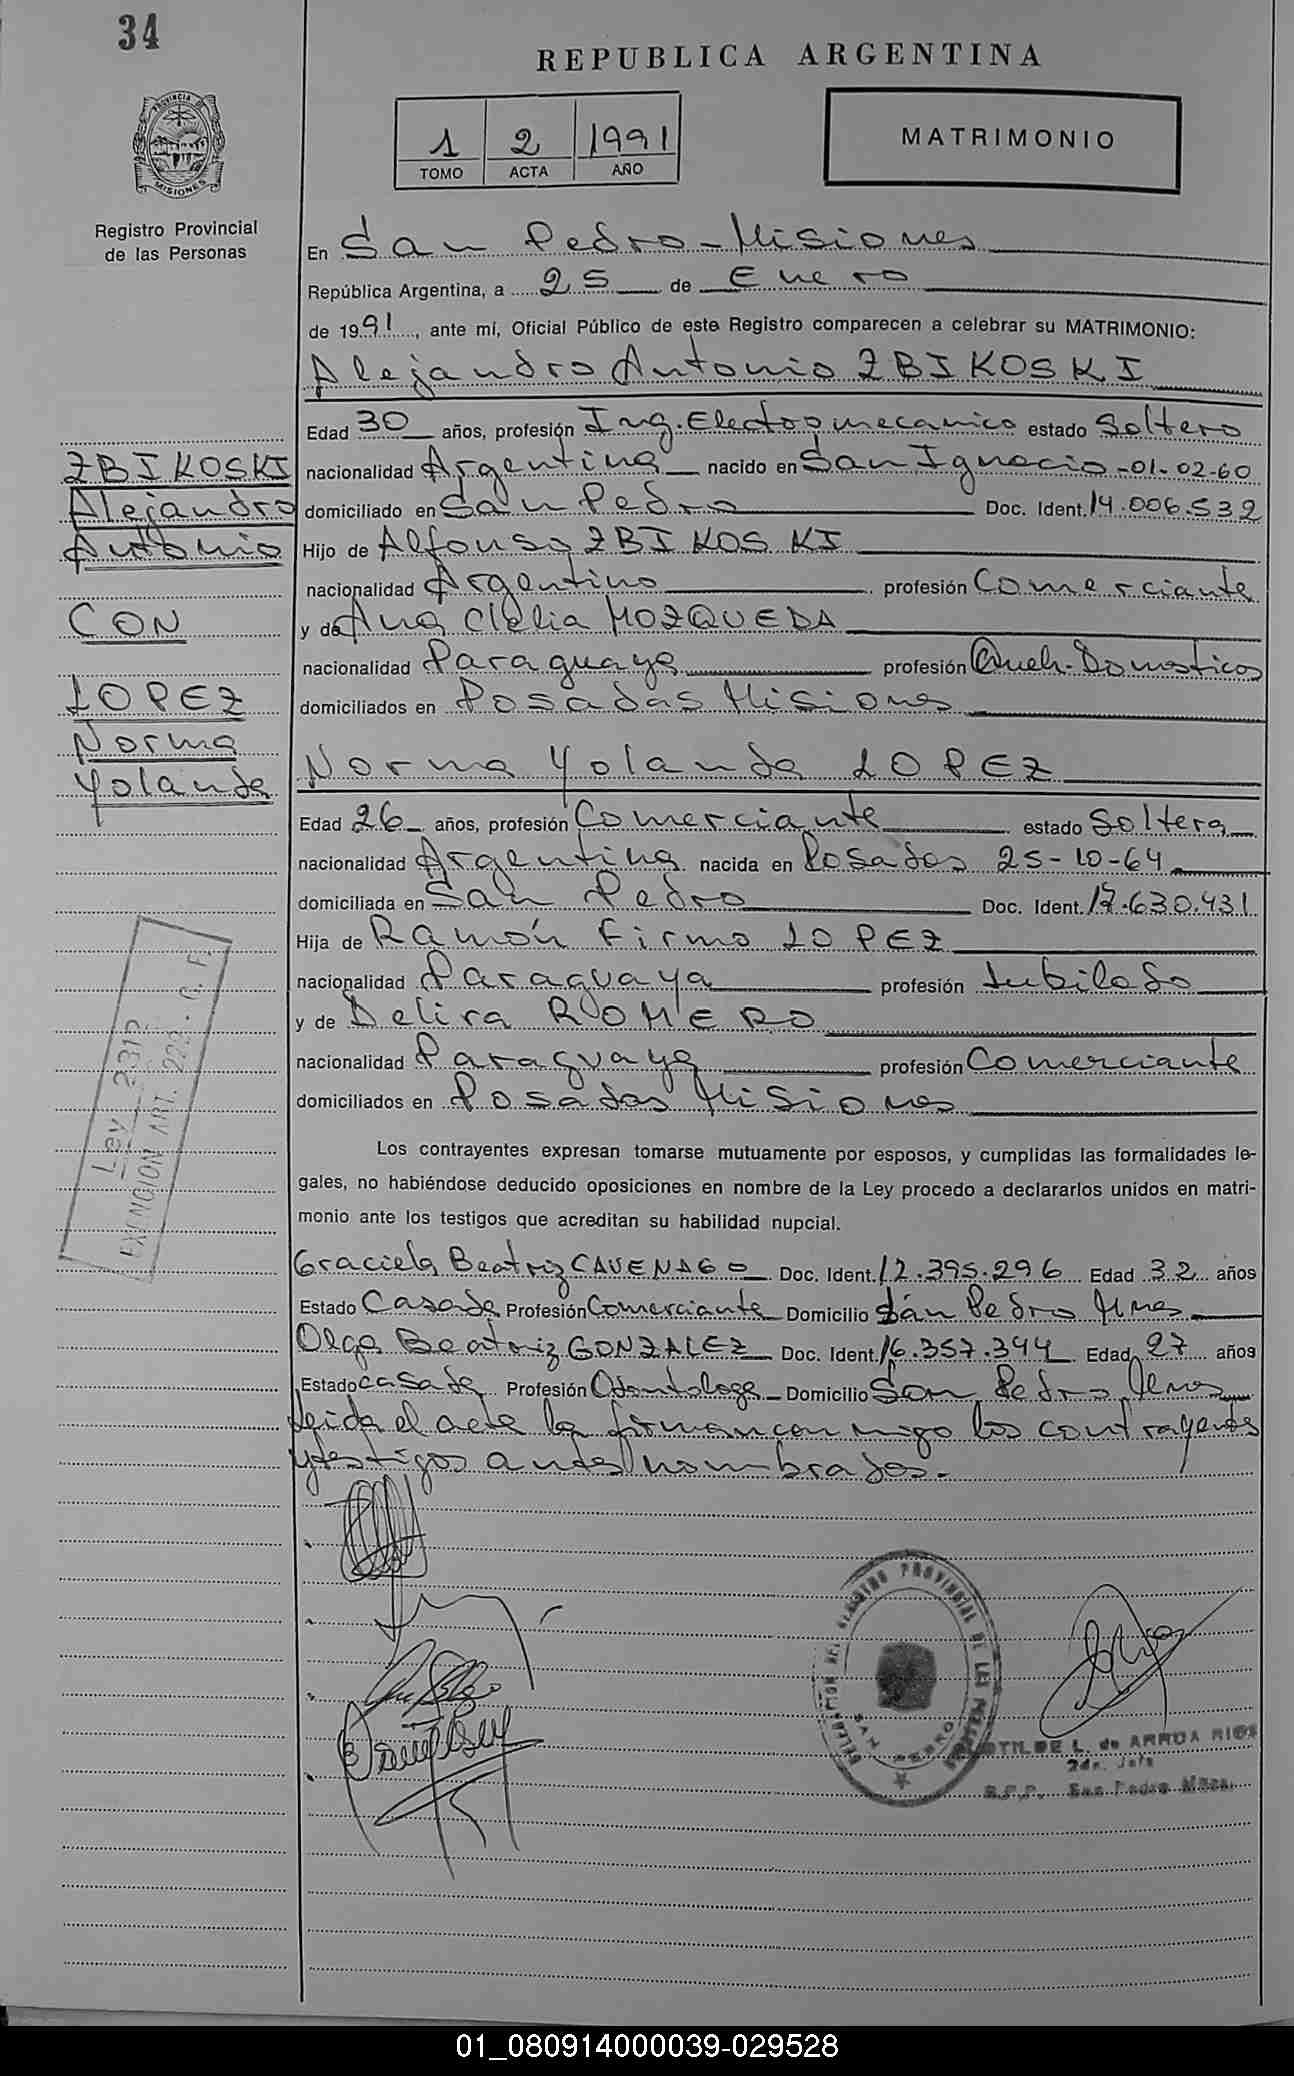 34
REPUBLICA ARGENTINA
PROVINCIA DE
MISIONES
Registro Provincial
de las Personas
1 2 1991
TOMO ACTA AÑO
MATRIMONIO
En San Pedro - Misiones
República Argentina, a 25 de Enero
de 1991, ante mí, Oficial Público de este Registro comparecen a celebrar su MATRIMONIO:
Alejandro Antonio ZBIKOSKI
Edad 30 años, profesión Ing. Electromecanico estado Soltero
nacionalidad Argentina nacido en San Ignacio -01-02-60
domiciliado en San Pedro Doc. Ident. 14.006.532
Hijo de Alfonso ZBIKOSKI
nacionalidad Argentino profesión Comerciante
y de Ana Clelia MOZQUEDA
nacionalidad Paraguaya profesión Queh. Domesticos
domiciliados en Posadas Misiones
Norma Yolanda LOPEZ
Edad 26 años, profesión Comerciante estado Soltera
nacionalidad Argentina nacida en Posadas 25-10-64
domiciliada en San Pedro Doc. Ident. 17.630.431
Hija de Ramón Firmo LOPEZ
nacionalidad Paraguaya profesión Jubilado
y de Delira ROMERO
nacionalidad Paraguaya profesión Comerciante
domiciliados en Posadas Misiones
Los contrayentes expresan tomarse mutuamente por esposos, y cumplidas las formalidades le-
gales, no habiéndose deducido oposiciones en nombre de la Ley procedo a declararlos unidos en matri-
monio ante los testigos que acreditan su habilidad nupcial.
Graciela Beatriz CAVENAGO Doc. Ident. 12.395.296 Edad 32 años
Estado Casada Profesión Comerciante Domicilio San Pedro Mnes
Olga Beatriz GONZALEZ Doc. Ident. 16.357.344 Edad 27 años
Estado casada Profesión Odontologa Domicilio San Pedro Mnes
leida el acta la firman con migo los contrayentes
y testigos antes nombrados.-
ZBIKOSKI
Alejandro
Antonio
CON
LOPEZ
Norma
Yolanda
Ley 2313
EXENCION ART. 223 - C. F.
DELEGACION DEL REGISTRO PROVINCIAL DE LAS PERSONAS
SAN PEDRO
L. de ARRUA RIOS
2da. Jefe
R.P.P. San Pedro Mnes.
01_080914000039-029528